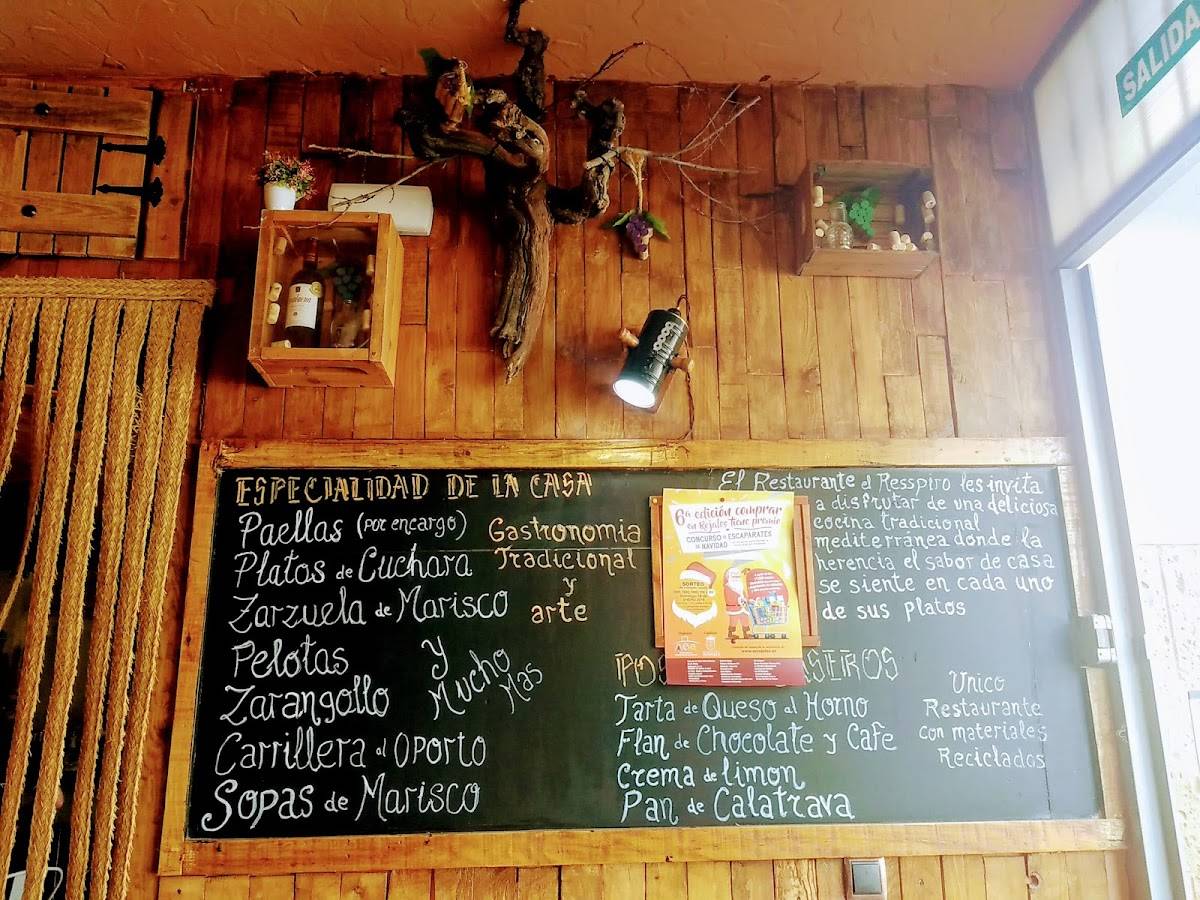 SALIDA
ESPECIALIDAD DE LA CASA
Paellas (por encargo)
Platos de Cuchara
Zarzuela de Marisco
Pelotas
Zarangollo
Carrillera al Oporto
Sopas de Marisco
Gastronomia
Tradicional
y
arte
y
Mucho
Mas
El Restaurante el Resspiro les invita
a disfrutar de una deliciosa
cocina tradicional
mediterránea donde la
herencia el sabor de casa
se siente en cada uno
de sus platos
6ª edición comprar
en Rojales tiene premio
CONCURSO de ESCAPARATES
de NAVIDAD
SORTEO
CASEROS
Tarta de Queso al Horno
Flan de Chocolate y Cafe
Crema de limon
Pan de Calatrava
Unico
Restaurante
con materiales
Reciclados